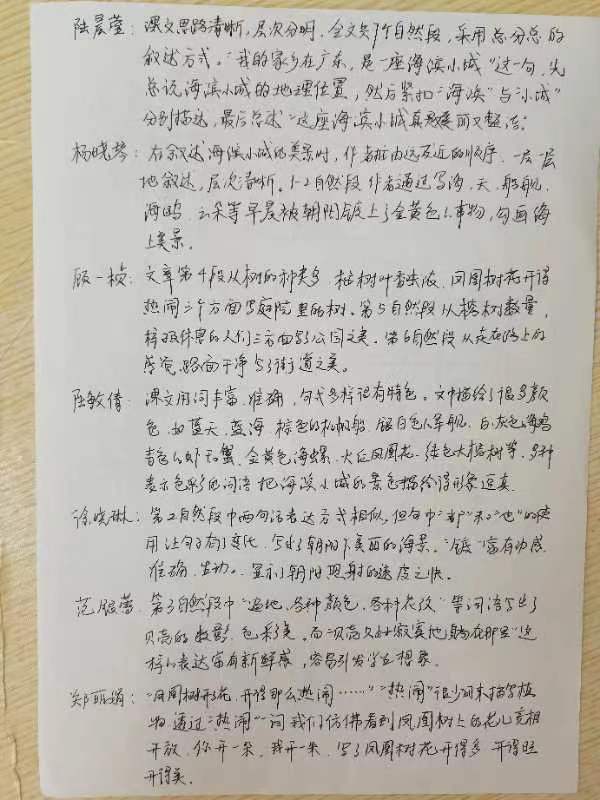 陆晨莹:课文思路清晰,层次分明,全文共7个自然段,采用总分总的
叙述方式。“我的家乡在广东,是一座海滨小城”这一句,先
总说海滨小城的地理位置,然后紧扣“海滨”与“小城”
分别描述,最后总述“这座海滨小城真是美丽又整洁”。
杨晓琴:在叙述海滨小城的美景时,作者都由远及近的顺序,一层一层
地叙述,层次清晰。1-2自然段作者通过写海、天、船舰、
海鸥、云朵等早晨被朝阳镀上了金黄色的事物,勾画海
上美景。
顾一桢:文章第4段从树的种类多 桉树叶香味浓、凤凰树花开得
热闹三个方面写庭院里的树。第5自然段从榕树数量,
休息的人们三方面写了公园之美。第6自然段从走在路上的
感觉,路面干净写了街道之美。
陆敏倩:课文用词丰富、准确,句式多样很有特色。文中描绘了很多颜
色,如蓝天、蓝海 棕色的机帆船、银白色的军舰、白、灰色海鸥
青色的虾和蟹、金黄色海螺、火红凤凰花、绿色大榕树等,多种
表示色彩的词语把海滨小城的景色描绘得形象逼真
徐晓琳:第2自然段中两句话表达方式相似,但句中“都”和“也”的使
用让句子有了变化,写出了朝阳下美丽的海景。“镀”富有动感
准确、生动。显示了朝阳照射的速度之快。
范 蕾:第3自然段中“遍地、各种颜色、各种花纹”等词语写出了
贝壳的数多、色彩美。而“贝壳只好寂寞地躺在那里”这
样的表达富有新鲜感,容易引发学生想象。
郑丽娟:“凤凰树开了花,开得那么热闹……”“热闹”很少用来描写植
物 通过“热闹”一词我们仿佛看到凤凰树上的花儿竞相
开放,你开一朵,我开一朵,写了凤凰树花开得多 开得旺
开得美。